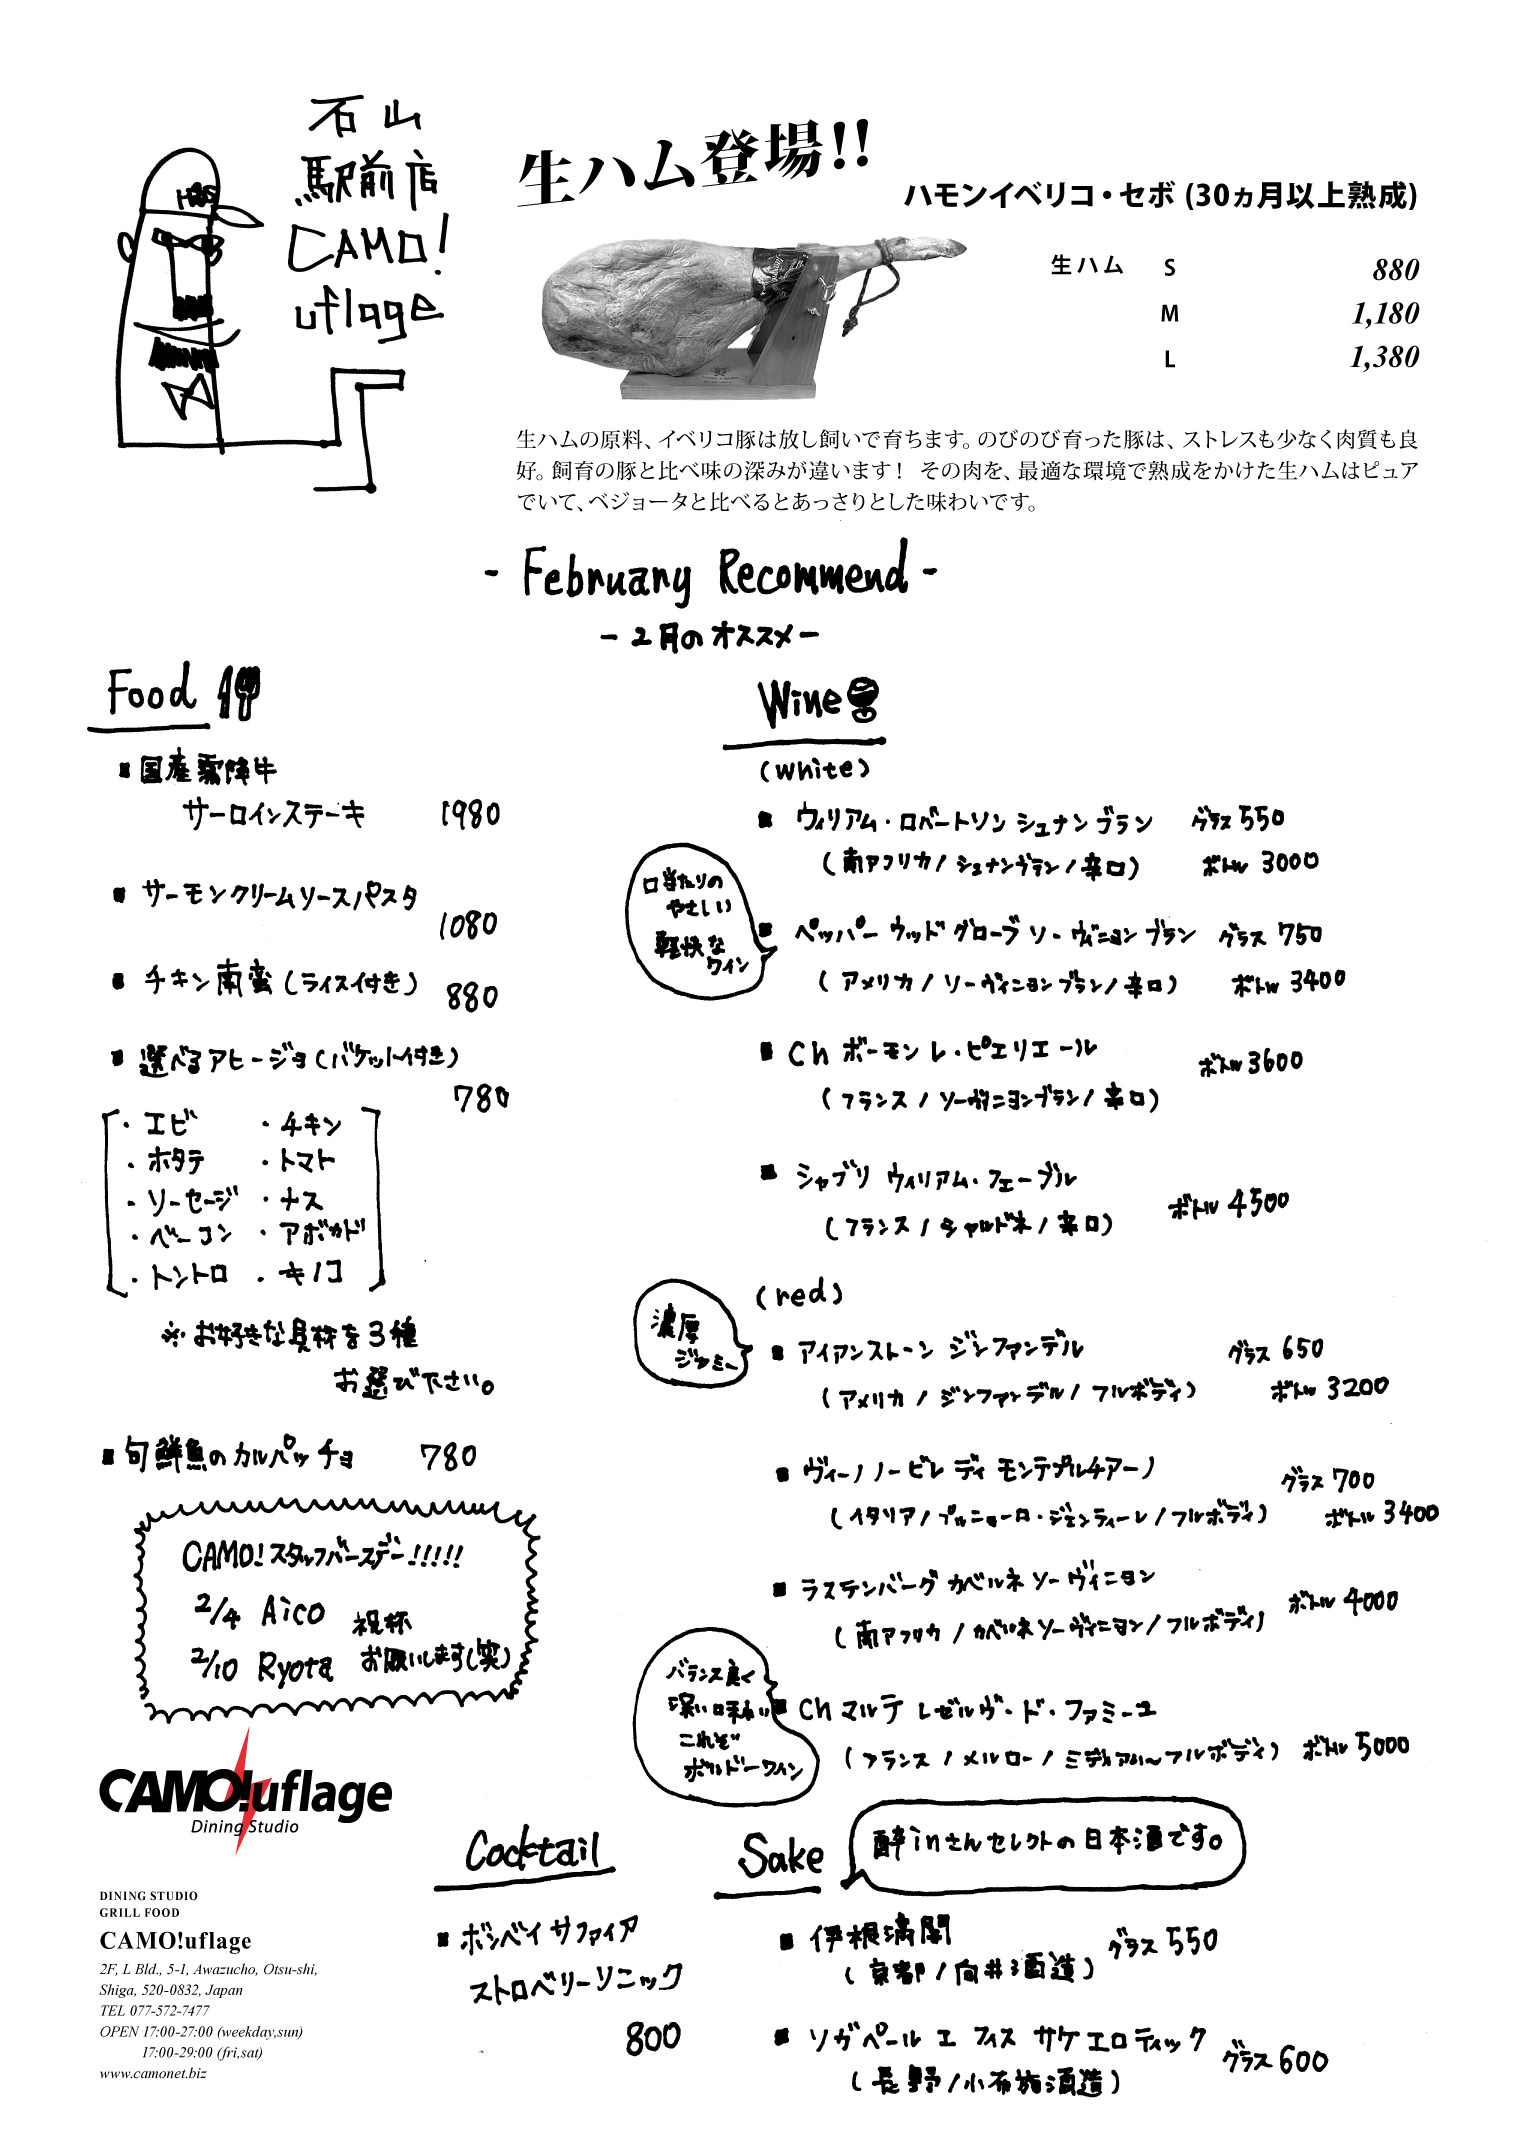 石山
駅前店
CAMO!
uflage
H&S
生ハム登場!!
ハモンイベリコ・セボ (30ヵ月以上熟成)
生ハム S 880
M 1,180
L 1,380
生ハムの原料、イベリコ豚は放し飼いで育ちます。のびのび育った豚は、ストレスも少なく肉質も良
好。飼育の豚と比べ味の深みが違います! その肉を、最適な環境で熟成をかけた生ハムはピュア
でいて、ベジョータと比べるとあっさりとした味わいです。
- February Recommend -
- 2月のオススメ -
Food
■ 国産霜降牛
サーロインステーキ 1980
■ サーモンクリームソースパスタ
1080
■ チキン南蛮(ライス付き) 880
■ 選べるアヒージョ(バケット付き)
780
・エビ ・チキン
・ホタテ ・トマト
・ソーセージ ・ナス
・ベーコン ・アボカド
・トントロ ・キノコ
※お好きな具材を3種
お選び下さい。
■ 旬鮮魚のカルパッチョ 780
CAMO!スタッフバースデー!!!!!
2/4 Aico 祝杯
2/10 Ryota お願いします(笑)
Wine
(white)
■ ウィリアム・ロバートソン シュナンブラン グラス 550
(南アフリカ/シュナンブラン/辛口) ボトル 3000
口当たりの
やさしい
軽快な
ワイン
■ ペッパーウッドグローブ ソーヴィニヨンブラン グラス 750
(アメリカ/ソーヴィニヨンブラン/辛口) ボトル 3400
■ Ch ボーモン レ・ピエリエール ボトル 3600
(フランス/ソーヴィニヨンブラン/辛口)
■ シャブリ ウィリアム・フェーブル
(フランス/シャルドネ/辛口) ボトル 4500
(red)
濃厚
ジャミー
■ アイアンストーン ジンファンデル グラス 650
(アメリカ/ジンファンデル/フルボディ) ボトル 3200
■ ヴィーノノービレ ディ モンテプルチアーノ グラス 700
(イタリア/プルニョーロ・ジェンティーレ/フルボディ) ボトル 3400
■ ラステンバーグ カベルネソーヴィニヨン ボトル 4000
(南アフリカ/カベルネソーヴィニヨン/フルボディ)
バランス良く
深い味わい
これぞ
ボルドーワイン
■ Ch マルテ レゼルヴ・ド・ファミーユ
(フランス/メルロー/ミディアム〜フルボディ) ボトル 5000
CAMO!uflage
Dining Studio
DINING STUDIO
GRILL FOOD
CAMO!uflage
2F, L Bld., 5-1, Awazucho, Otsu-shi,
Shiga, 520-0832, Japan
TEL 077-572-7477
OPEN 17:00-27:00 (weekday,sun)
17:00-29:00 (fri,sat)
www.camonet.biz
Cocktail
■ ボンベイサファイア
ストロベリーソニック
800
Sake
酔inさんセレクトの日本酒です。
■ 伊根満開 グラス 550
(京都/向井酒造)
■ ソガペール エ フィス サケ エロティック グラス 600
(長野/小布施酒造)